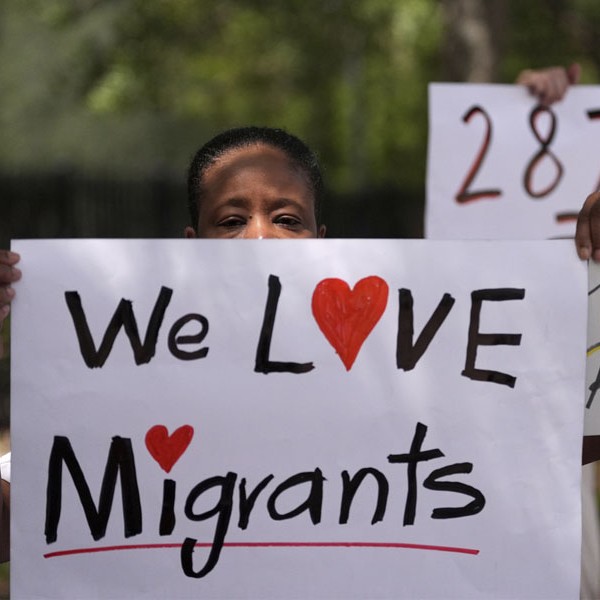 We LOVE
Migrants
287